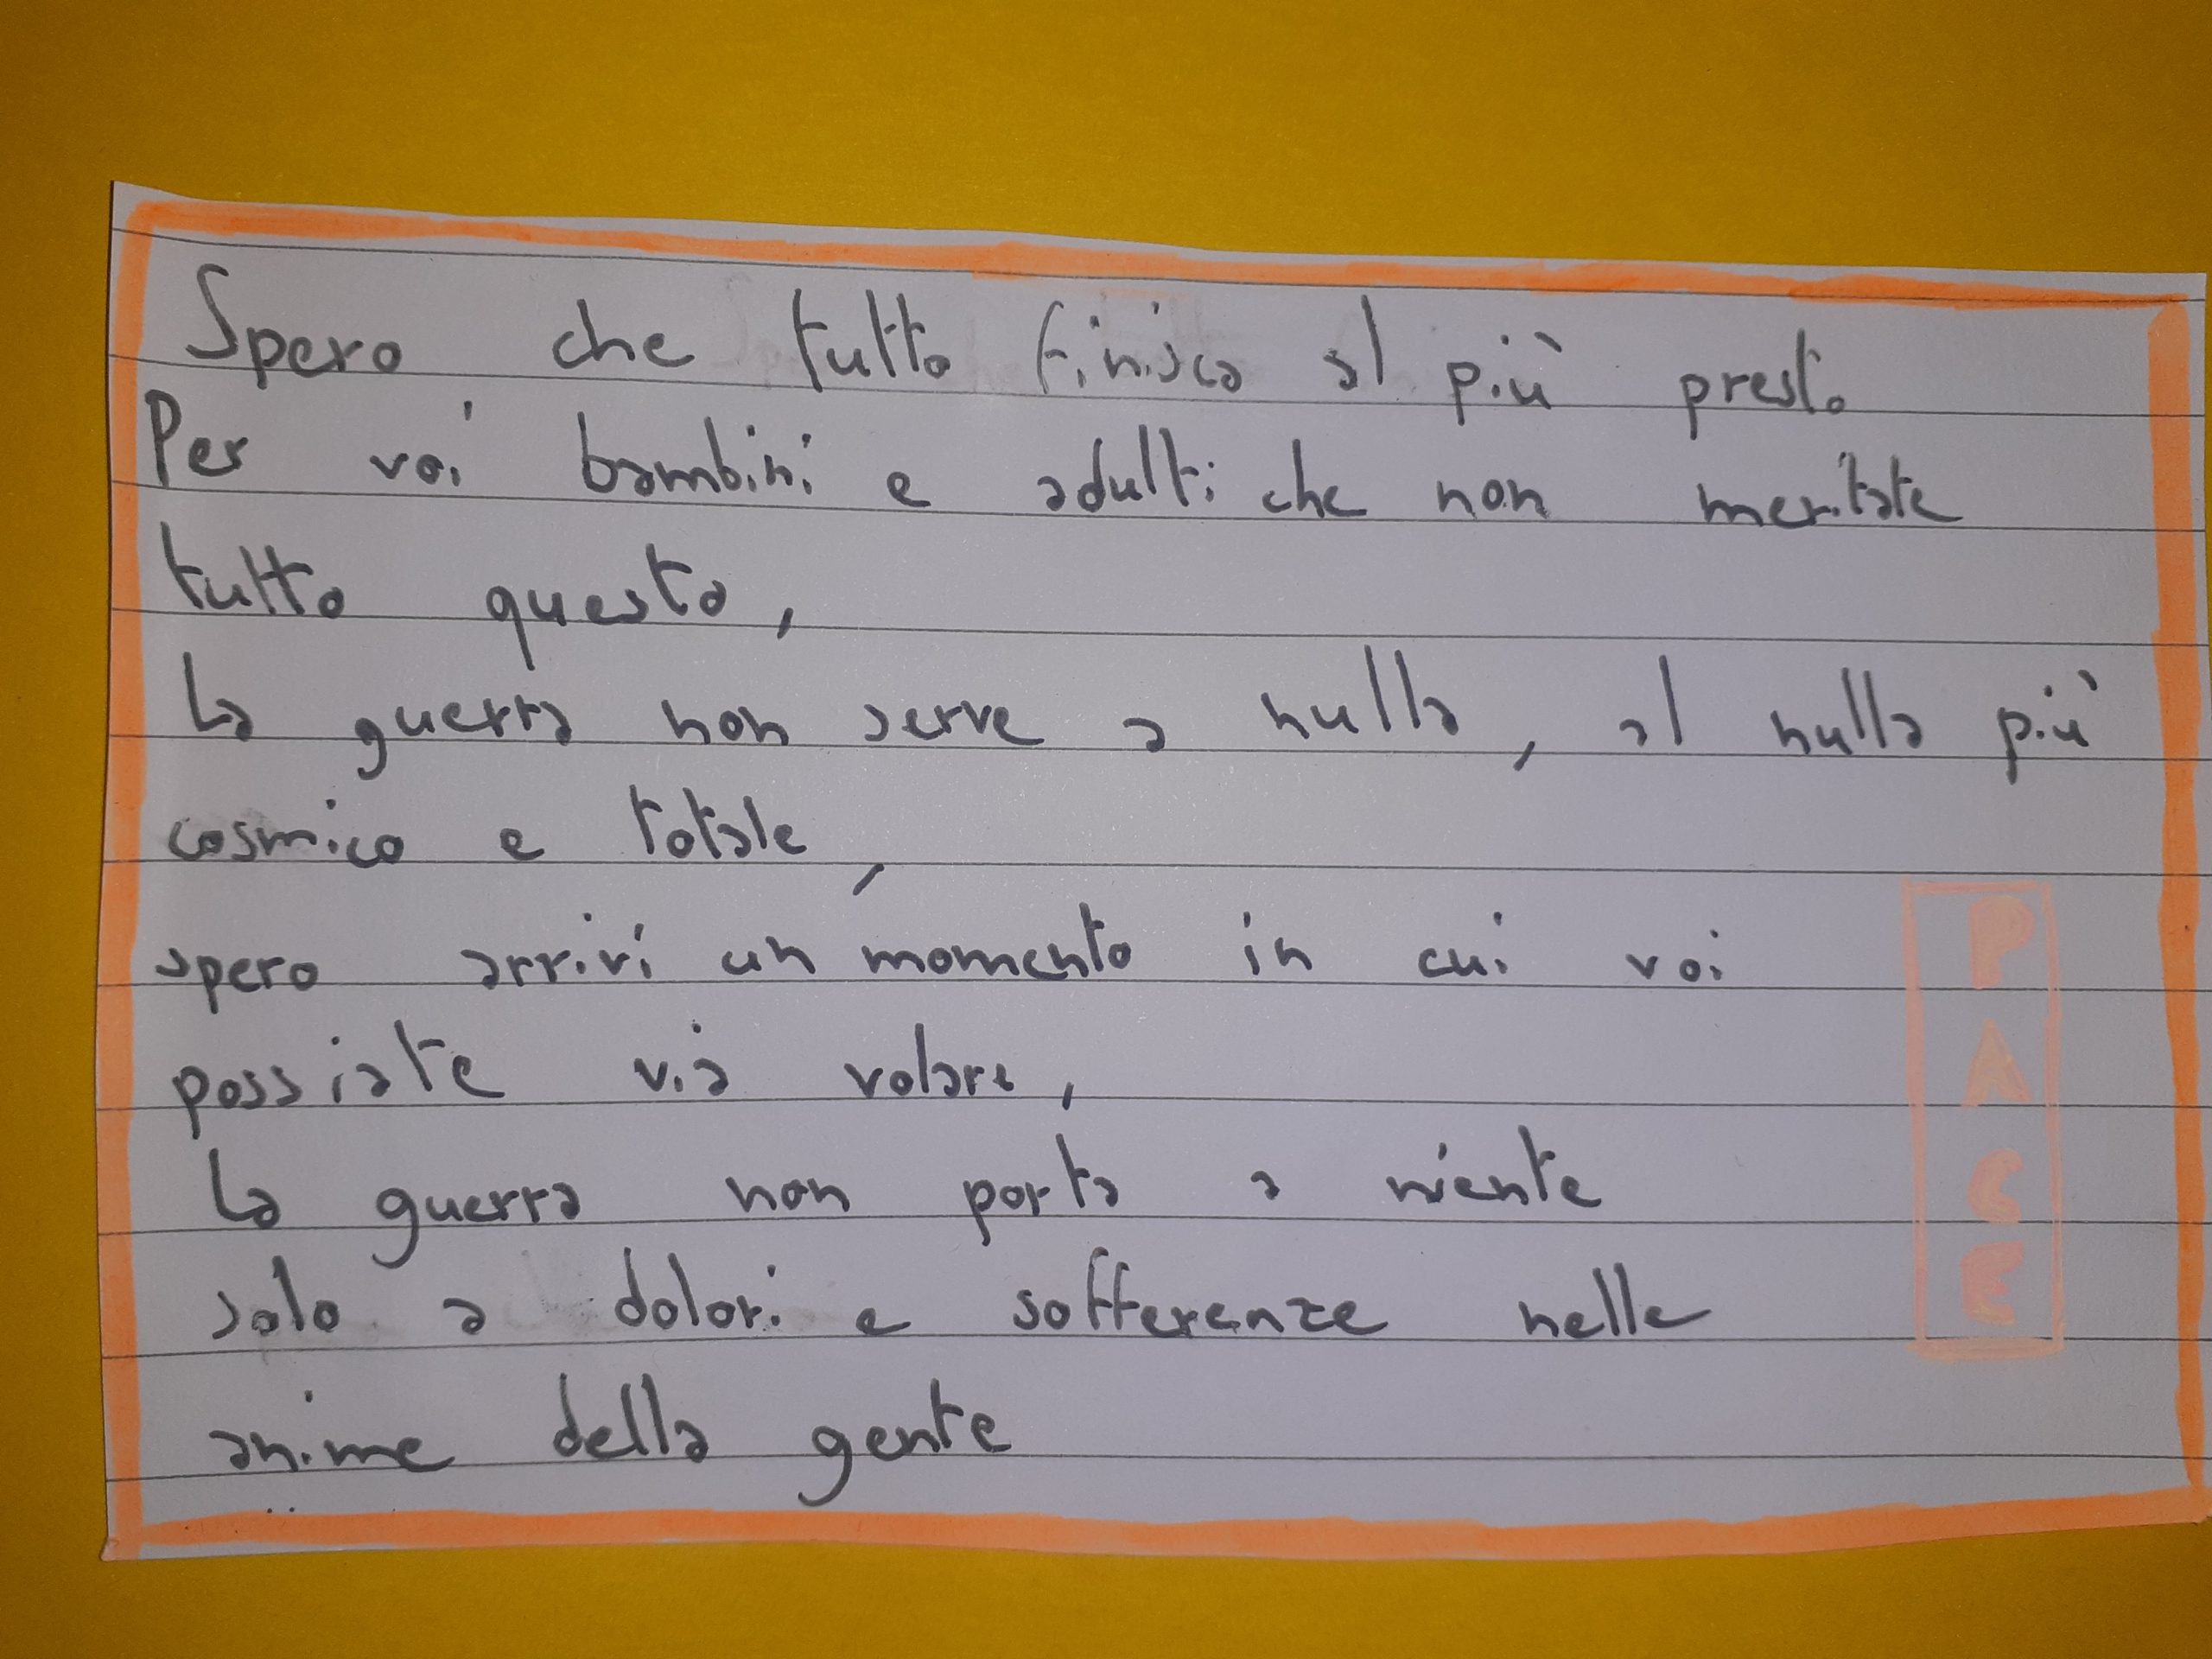 Spero che tutto finisca al più presto
Per voi bambini e adulti che non meritate
tutto questo,
La guerra non serve a nulla, al nulla più
cosmico e totale,
spero arrivi un momento in cui voi
possiate via volare,
La guerra non porta a niente
solo a dolori e sofferenze nelle
anime della gente
PACE